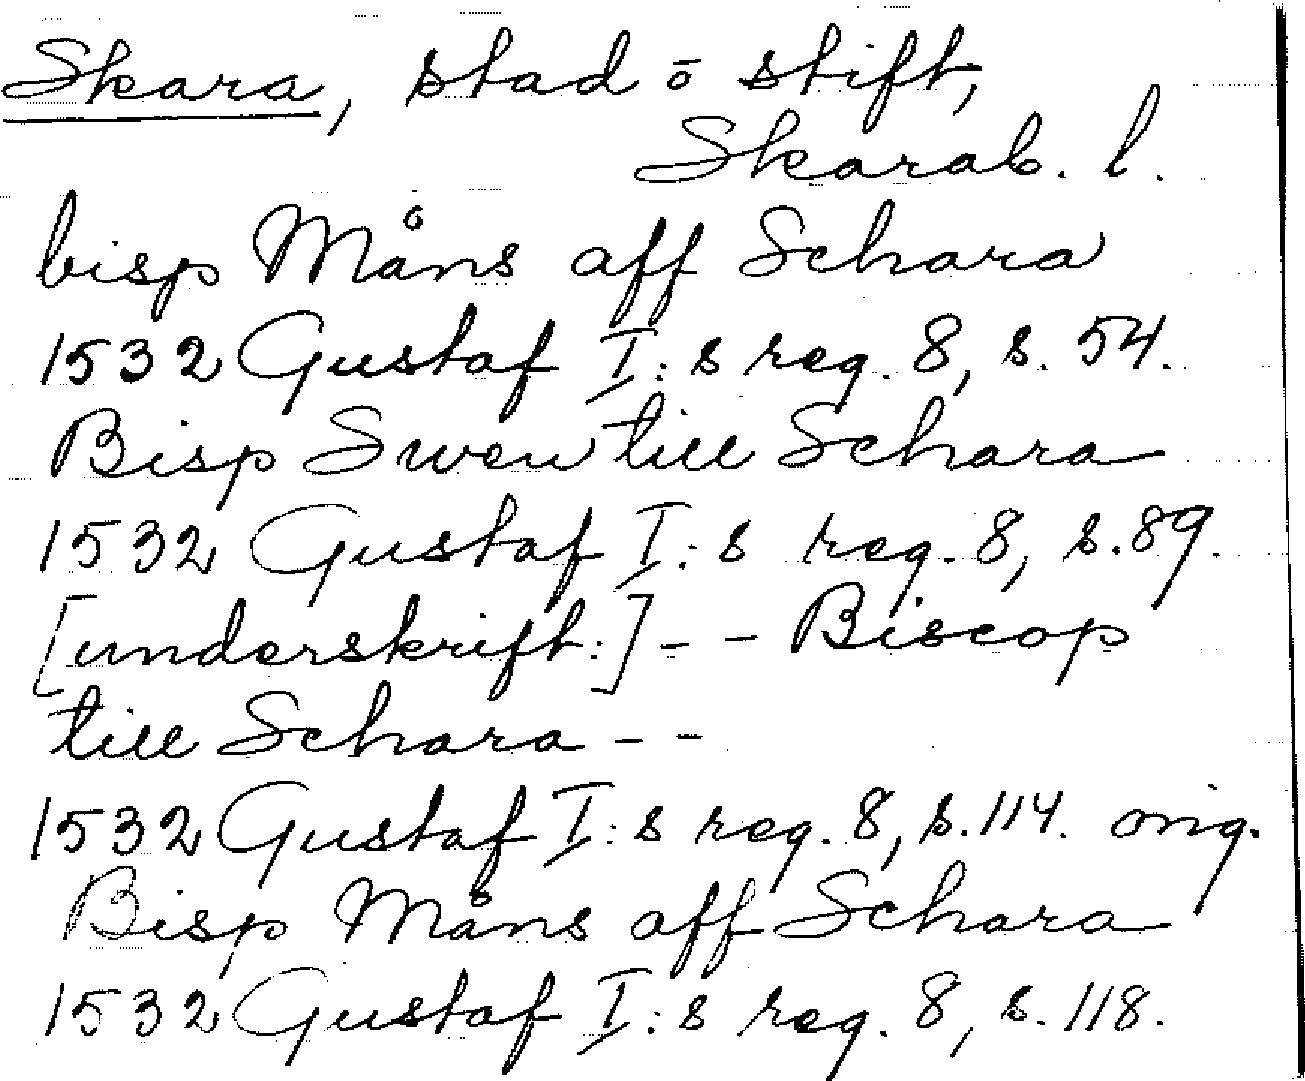 Skara, stad o stift,
Skarab. l.
bisp Måns aff Schara
1532 Gustaf I:s reg. 8, s. 54.
Bisp Swen till Schara
1532 Gustaf I:s reg. 8, s. 89.
[underskrift:] - - Biscop
till Schara - -
1532 Gustaf I:s reg. 8, s. 114. orig.
Bisp Måns aff Schara
1532 Gustaf I:s reg. 8, s. 118.